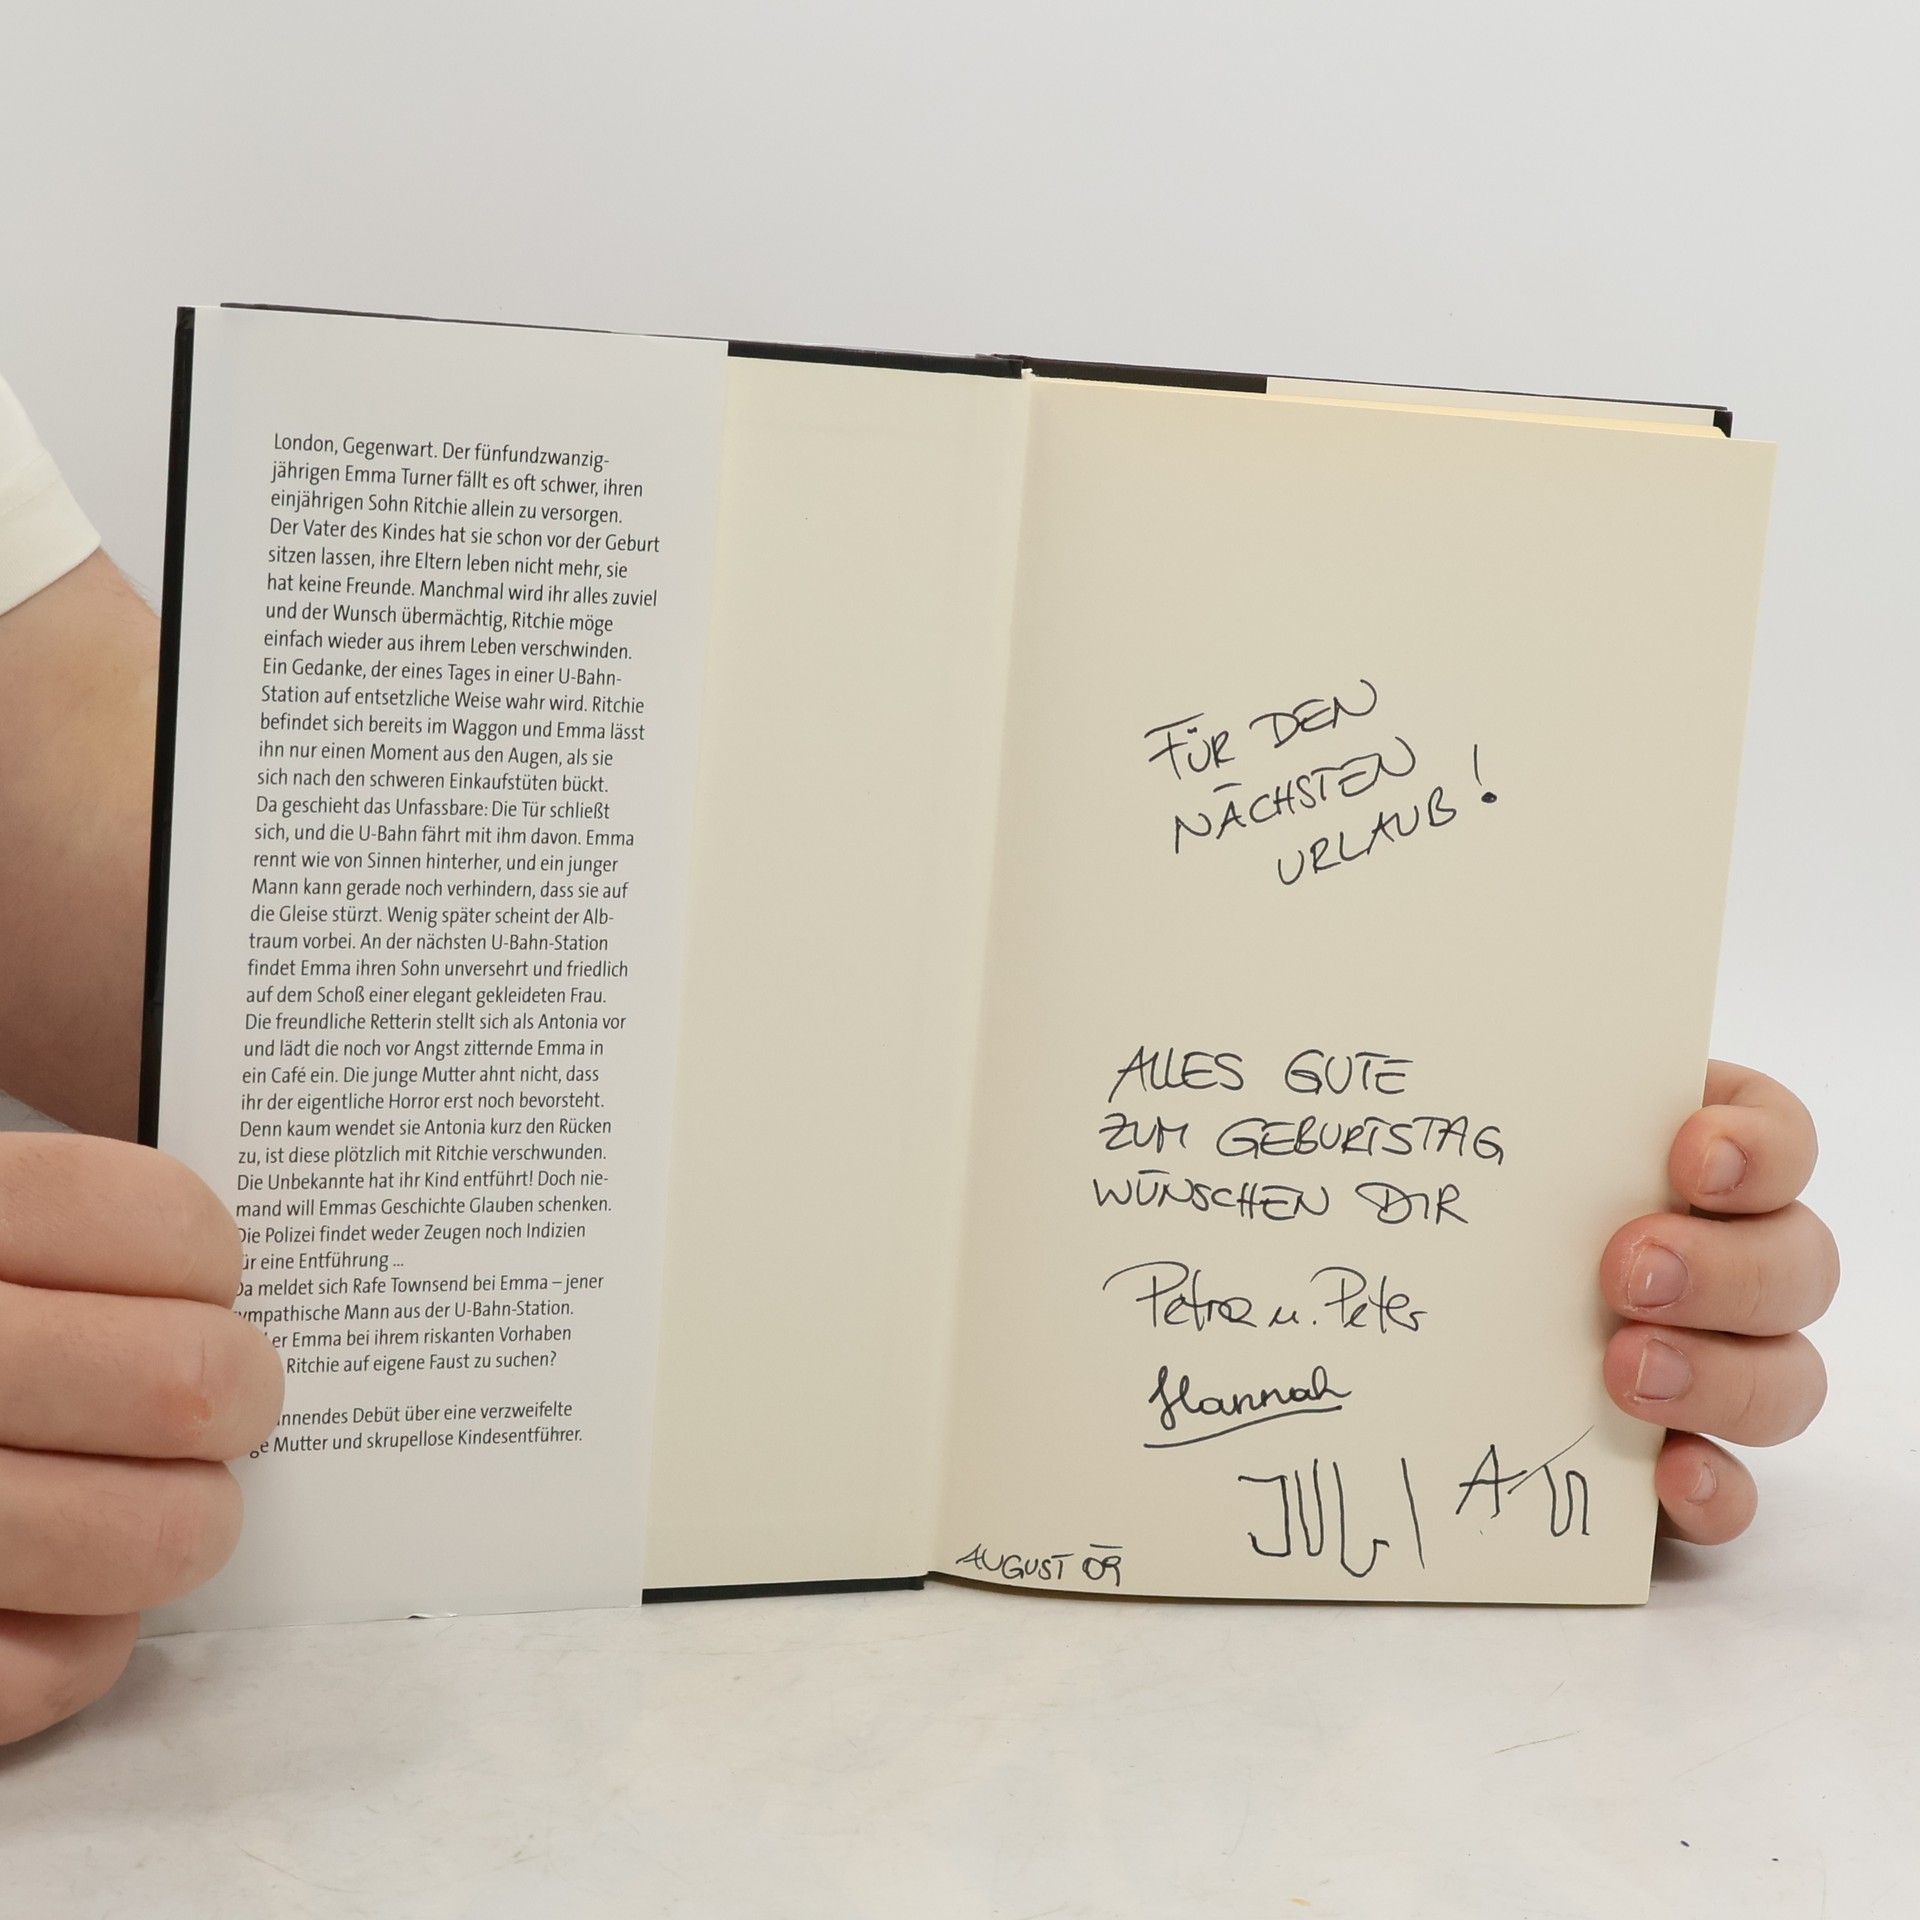 London, Gegenwart. Der fünfundzwanzig-
jährigen Emma Turner fällt es oft schwer, ihren
einjährigen Sohn Ritchie allein zu versorgen.
Der Vater des Kindes hat sie schon vor der Geburt
sitzen lassen, ihre Eltern leben nicht mehr, sie
hat keine Freunde. Manchmal wird ihr alles zuviel
und der Wunsch übermächtig, Ritchie möge
einfach wieder aus ihrem Leben verschwinden.
Ein Gedanke, der eines Tages in einer U-Bahn-
Station auf entsetzliche Weise wahr wird. Ritchie
befindet sich bereits im Waggon und Emma lässt
ihn nur einen Moment aus den Augen, als sie
sich nach den schweren Einkaufstüten bückt.
Da geschieht das Unfassbare: Die Tür schließt
sich, und die U-Bahn fährt mit ihm davon. Emma
rennt wie von Sinnen hinterher, und ein junger
Mann kann gerade noch verhindern, dass sie auf
die Gleise stürzt. Wenig später scheint der Alb-
traum vorbei. An der nächsten U-Bahn-Station
findet Emma ihren Sohn unversehrt und friedlich
auf dem Schoß einer elegant gekleideten Frau.
Die freundliche Retterin stellt sich als Antonia vor
und lädt die noch vor Angst zitternde Emma in
ein Café ein. Die junge Mutter ahnt nicht, dass
ihr der eigentliche Horror erst noch bevorsteht.
Denn kaum wendet sie Antonia kurz den Rücken
zu, ist diese plötzlich mit Ritchie verschwunden.
Die Unbekannte hat ihr Kind entführt! Doch nie-
mand will Emmas Geschichte Glauben schenken.
Die Polizei findet weder Zeugen noch Indizien
für eine Entführung ...
Da meldet sich Rafe Townsend bei Emma – jener
sympathische Mann aus der U-Bahn-Station.
er Emma bei ihrem riskanten Vorhaben
Ritchie auf eigene Faust zu suchen?
Debüt über eine verzweifelte
Mutter und skrupellose Kindesentführer.
FÜR DEN
NÄCHSTEN
URLAUB!
ALLES GUTE
ZUM GEBURTSTAG
WÜNSCHEN DIR
Petra u. Peter
Hannah
JULIAN
AUGUST 09